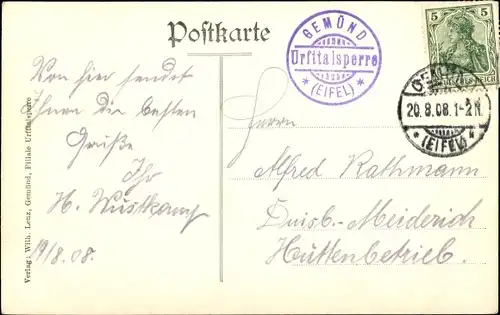 Postkarte
GEMÜND
Urfttalsperre
* (EIFEL) *
5 5
GEMÜND
20.8.08.1-2N.
* (EIFEL) *
Von hier sendet
Ihnen die besten
Grüße
Ihr
H. Wüstkamp
19/8.08.
Herrn
Alfred Rathmann
Duisb.-Meiderich
Hüttenbetrieb.
Verlag: Wilh. Lenz, Gemünd, Filiale Urfttalsperre